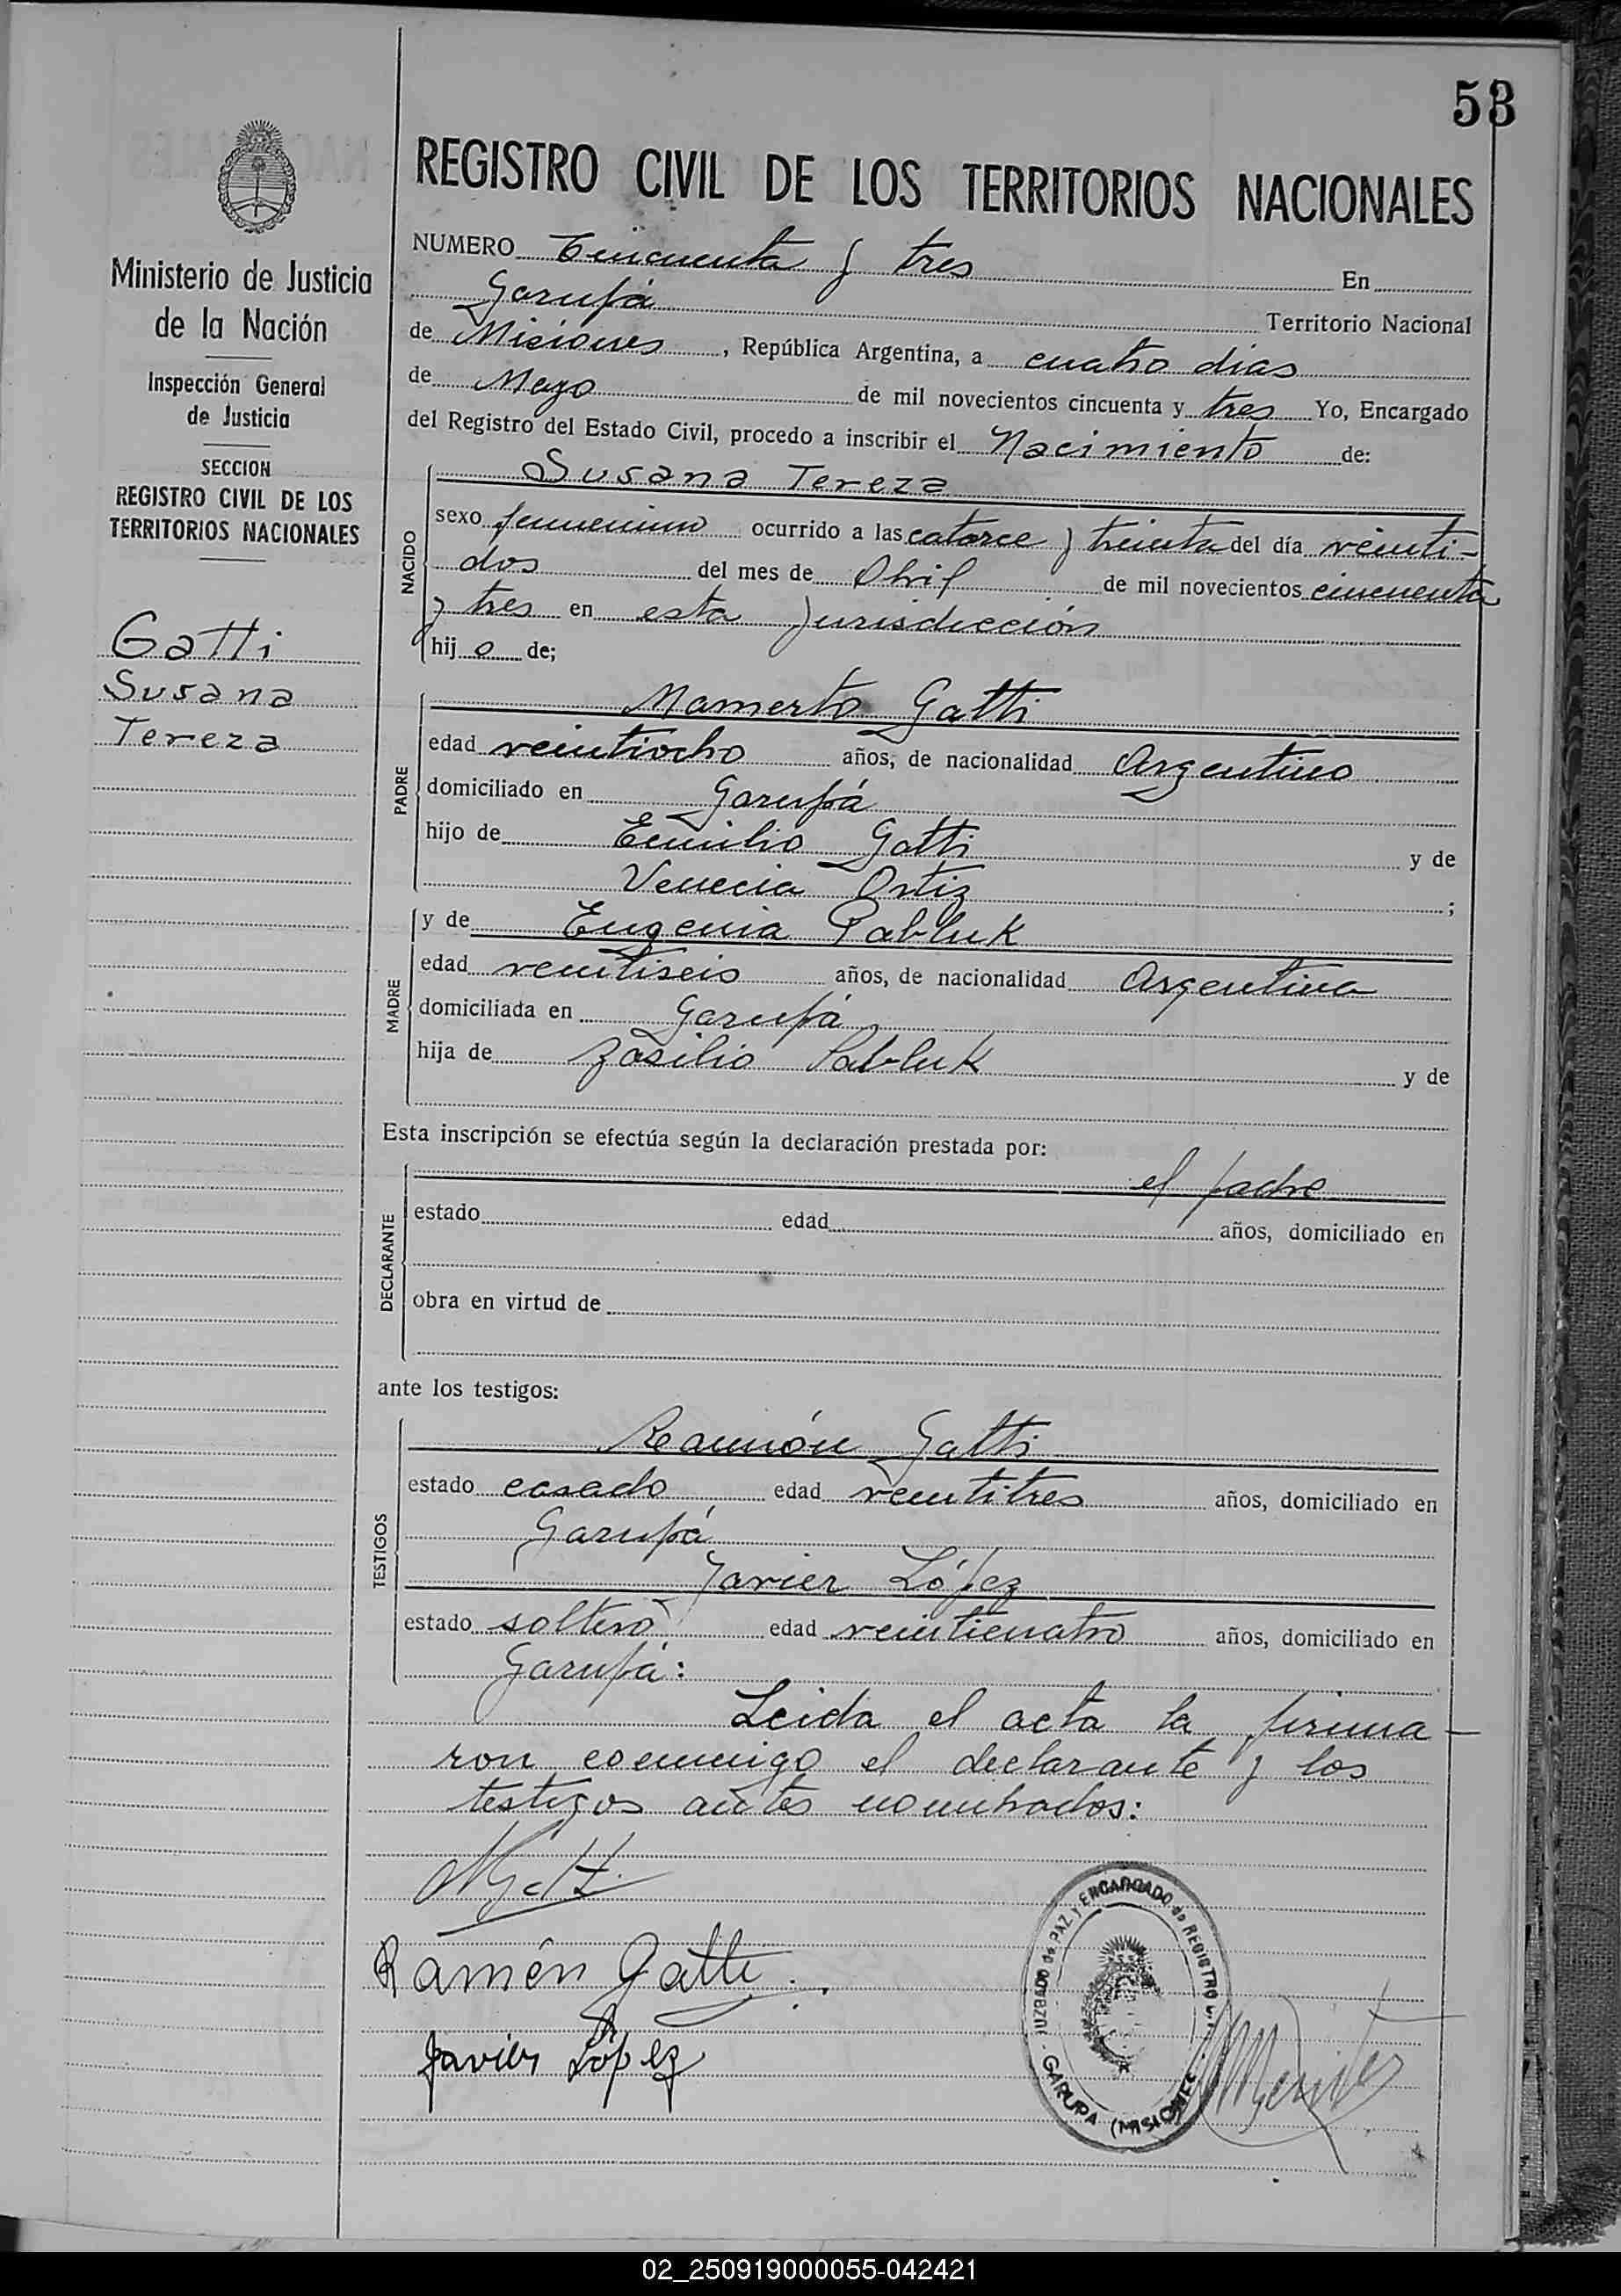 53
REGISTRO CIVIL DE LOS TERRITORIOS NACIONALES
Ministerio de Justicia
de la Nación
Inspección General
de Justicia
SECCION
REGISTRO CIVIL DE LOS
TERRITORIOS NACIONALES
Gatti
Susana
Tereza
NUMERO Cincuenta y tres En
Garupá Territorio Nacional
de Misiones, República Argentina, a cuatro dias
de Mayo de mil novecientos cincuenta y tres Yo, Encargado
del Registro del Estado Civil, procedo a inscribir el Nacimiento de:
NACIDO
Susana Tereza
sexo femenino ocurrido a las catorce y treinta del día veinti-
dos del mes de Abril de mil novecientos cincuenta
y tres en esta jurisdicción
hij a de;
PADRE
Mamerto Gatti
edad veintiocho años, de nacionalidad Argentino
domiciliado en Garupá
hijo de Emilio Gatti y de
Venecia Ortiz ;
MADRE
y de Eugenia Pabluk
edad veintiseis años, de nacionalidad Argentina
domiciliada en Garupá
hija de Basilio Pabluk y de
Esta inscripción se efectúa según la declaración prestada por:
DECLARANTE
el padre
estado edad años, domiciliado en
obra en virtud de
ante los testigos:
TESTIGOS
Ramón Gatti
estado casado edad veintitres años, domiciliado en
Garupá
Javier López
estado soltero edad veinticuatro años, domiciliado en
Garupá:
Leida el acta la firma-
ron conmigo el declarante y los
testigos antes nombrados:
MGatti
Ramón Gatti
Javier López
JUZGADO de PAZ y ENCARGADO de REGISTRO
GARUPA (MISIONES)
02_250919000055-042421